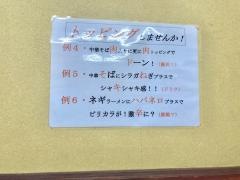 トッピングしませんか！
例４・中華そば肉入りに更に肉トッピングで
ドーン！
例５・中華そばにシラガねぎプラスで
シャキシャキ感！！
例６・ネギラーメンにハバネロプラスで
ピリカラが！激辛に？